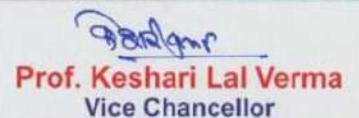 Prof. Keshari Lal Verma
Vice Chancellor